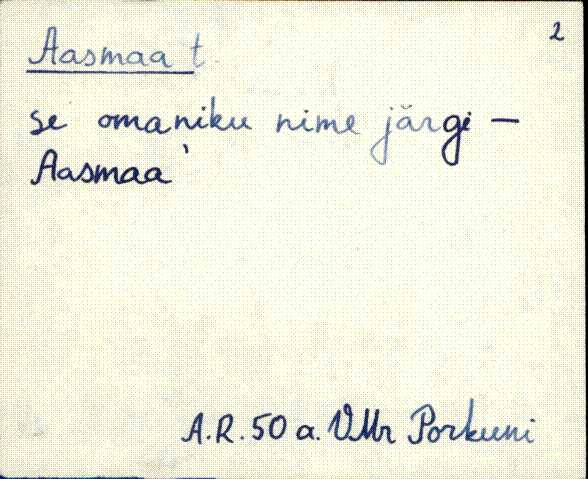 2
Aasmaa t.
se omaniku nime järgi —
Aasmaa`
A.R. 50 a. VMr Porkuni